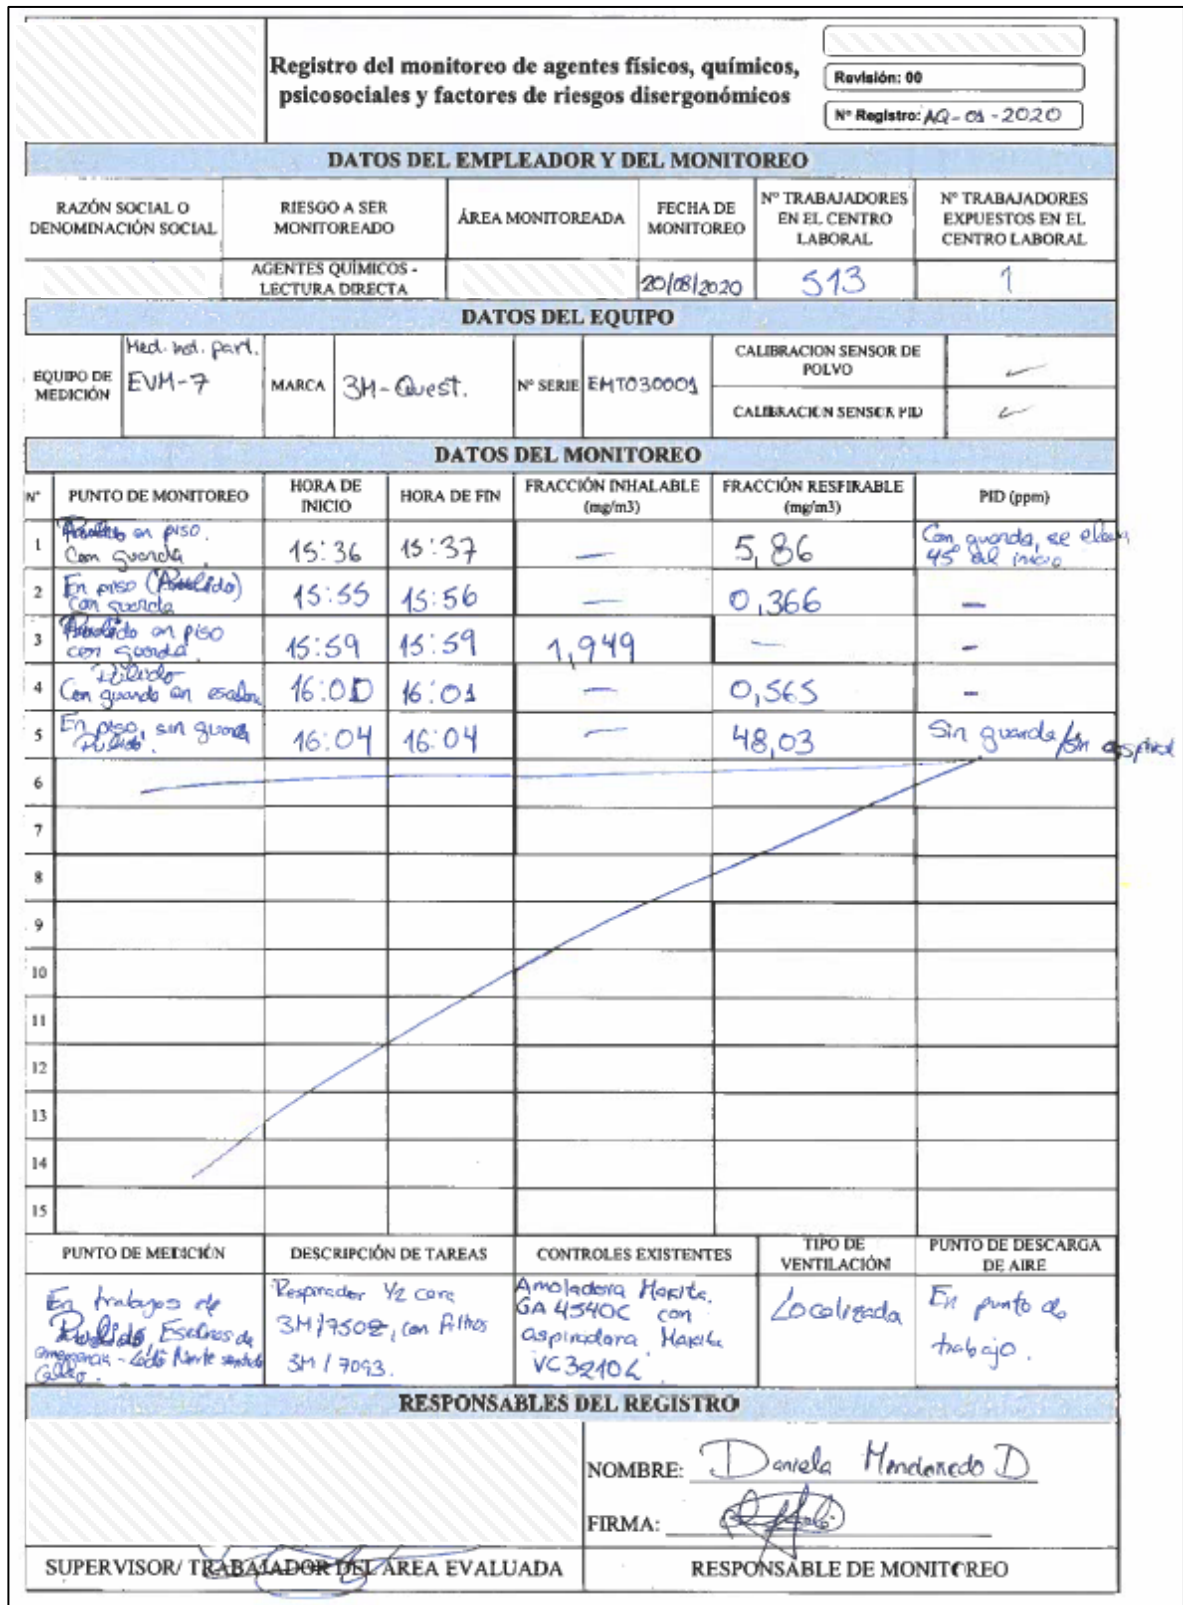 Registro del monitoreo de agentes físicos, químicos,
psicosociales y factores de riesgos disergonómicos
Revisión: 00
N° Registro: AQ-01-2020
DATOS DEL EMPLEADOR Y DEL MONITOREO
RAZÓN SOCIAL O DENOMINACIÓN SOCIAL
RIESGO A SER MONITOREADO
ÁREA MONITOREADA
FECHA DE MONITOREO
N° TRABAJADORES EN EL CENTRO LABORAL
N° TRABAJADORES EXPUESTOS EN EL CENTRO LABORAL
AGENTES QUÍMICOS - LECTURA DIRECTA
20/08/2020
513
1
DATOS DEL EQUIPO
EQUIPO DE MEDICIÓN
Med. part.
EVM-7
MARCA
3M-Quest.
N° SERIE
EMT030001
CALIBRACION SENSOR DE POLVO
CALIBRACION SENSOR PID
DATOS DEL MONITOREO
N° PUNTO DE MONITOREO HORA DE INICIO HORA DE FIN FRACCIÓN INHALABLE (mg/m3) FRACCIÓN RESPIRABLE (mg/m3) PID (ppm)
1 en piso. Con guarda 15:36 15:37 — 5,86 Con guarda, se eleva 45° del inicio
2 En piso (Pulido) Con guarda 15:55 15:56 — 0,366 -
3 Pulido en piso con guarda 15:59 15:59 1,949 — -
4 Pulido Con guarda en 16:00 16:01 — 0,565 -
5 En piso, sin guarda Pulido. 16:04 16:04 — 48,03 Sin guarda/sin
6
7
8
9
10
11
12
13
14
15
PUNTO DE MEDICIÓN
DESCRIPCIÓN DE TAREAS
CONTROLES EXISTENTES
TIPO DE VENTILACIÓN
PUNTO DE DESCARGA DE AIRE
En trabajos de
Pulido, Escaleras de
emergencia - Lado Norte sentido
Callao.
Respirador 1/2 cara
3M/7502, con filtros
3M / 7093.
Amoladora Makita.
GA 4540C con
aspiradora Makita
VC3210L
Localizada
En punto de
trabajo.
RESPONSABLES DEL REGISTRO
NOMBRE: Daniela D
FIRMA:
SUPERVISOR/ TRABAJADOR DEL AREA EVALUADA
RESPONSABLE DE MONITOREO